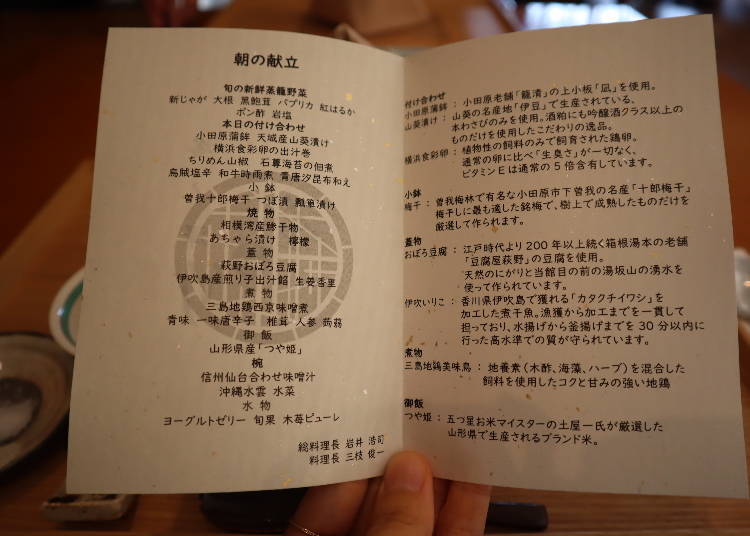 朝の献立
旬の新鮮蒸籠野菜
新じゃが 大根 黒鮑茸 パプリカ 紅はるか
ポン酢 岩塩
本日の付け合わせ
小田原蒲鉾 天城産山葵漬け
横浜食彩卵の出汁巻
ちりめん山椒 石蓴海苔の佃煮
烏賊塩辛 和牛時雨煮 青唐汐昆布和え
小鉢
曽我十郎梅干 つぼ漬 瓢箪漬け
焼物
相模湾産鯵干物
あちゃら漬け 檸檬
蓋物
萩野おぼろ豆腐
伊吹島産煎り子出汁餡 生姜香里
煮物
三島地鶏西京味噌煮
青味 一味唐辛子 椎茸 人参 蒟蒻
御飯
山形県産「つや姫」
椀
信州仙台合わせ味噌汁
沖縄水雲 水菜
水物
ヨーグルトゼリー 旬果 木苺ピューレ
総料理長 岩井 浩司
料理長 三枝 俊一
付け合わせ
小田原蒲鉾：小田原老舗「籠清」の上小板「凪」を使用。
山葵漬け：山葵の名産地「伊豆」で生産されている、
本わさびのみを使用。酒粕にも吟醸酒クラス以上の
ものだけを使用したこだわりの逸品。
横浜食彩卵：植物性の飼料のみで飼育された鶏卵。
通常の卵に比べ「生臭さ」が一切なく、
ビタミンEは通常の5倍含有しています。
小鉢
梅干：曽我梅林で有名な小田原市下曽我の名産「十郎梅干」
梅干しに最も適した銘梅で、樹上で成熟したものだけを
厳選して作られます。
蓋物
おぼろ豆腐：江戸時代より200年以上続く箱根湯本の老舗
「豆腐屋萩野」の豆腐を使用。
天然のにがりと当館目の前の湯坂山の湧水を
使って作られています。
伊吹いりこ：香川県伊吹島で獲れる「カタクチイワシ」を
加工した煮干魚。漁獲から加工までを一貫して
担っており、水揚げから釜揚げまでを30分以内に
行った高水準での質が守られています。
煮物
三島地鶏美味鳥：地養素（木酢、海藻、ハーブ）を混合した
飼料を使用したコクと甘みの強い地鶏
御飯
つや姫：五つ星お米マイスターの土屋一氏が厳選した
山形県で生産されるブランド米。